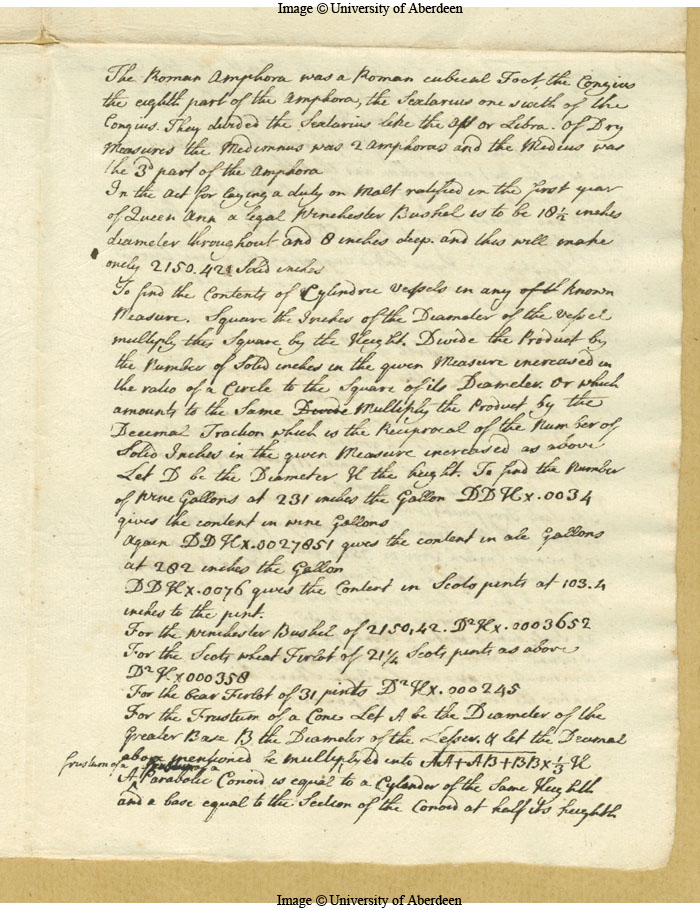 Image © University of Aberdeen
The Roman Amphora was a Roman cubical Foot, the Congius
the eighth part of the Amphora, the Sextarius one sixth of the
Congius. They divided the Sextarius like the Ass or Libra. Of Dry
Measures the Medimnus was 2 Amphoras and the Modius was
the 3d part of the Amphora
In the Act for laying a duty on Malt ratified in the first year
of Queen Ann a legal Winchester Bushel is to be 18½ inches
diameter throughout and 8 inches deep. and this will make
onely 2150.42 Solid inches
To find the Contents of Cylindric Vessels in any known
Measure. Square the Inches of the Diameter of the Vessel
multiply this Square by the Height. Divide the Product by
the Number of Solid inches in the given Measure increased in
the ratio of a Circle to the Square of its Diameter. Or which
amounts to the Same Divide Multiply the Product by the
Decimal Fraction which is the Reciprocal of the Number of
Solid Inches in the given Measure increased as above
Let D be the Diameter H the height. To find the Number
of Wine Gallons at 231 inches the Gallon DDH×.0034
gives the content in wine Gallons
Again DDH×.0027851 gives the content in ale Gallons
at 282 inches the Gallon
DDH×.0076 gives the Content in Scots pints at 103.4
inches to the pint.
For the Winchester Bushel of 2150,42. D²H×.0003652
For the Scots wheat Firlot of 21¼ Scots pints as above
D²H×000358
For the bear Firlot of 31 pints D²H×.000245
For the Frustum of a Cone Let A be the Diameter of the
Greater Base B the Diameter of the Lesser. & let the Decimal
above mentioned be multiplyed into AA+AB+BB×⅓H
frustum of a
A Parabolic Conoid is equal to a Cylinder of the Same Heighth
and a base equal to the Section of the Conoid at half its heighth
Image © University of Aberdeen